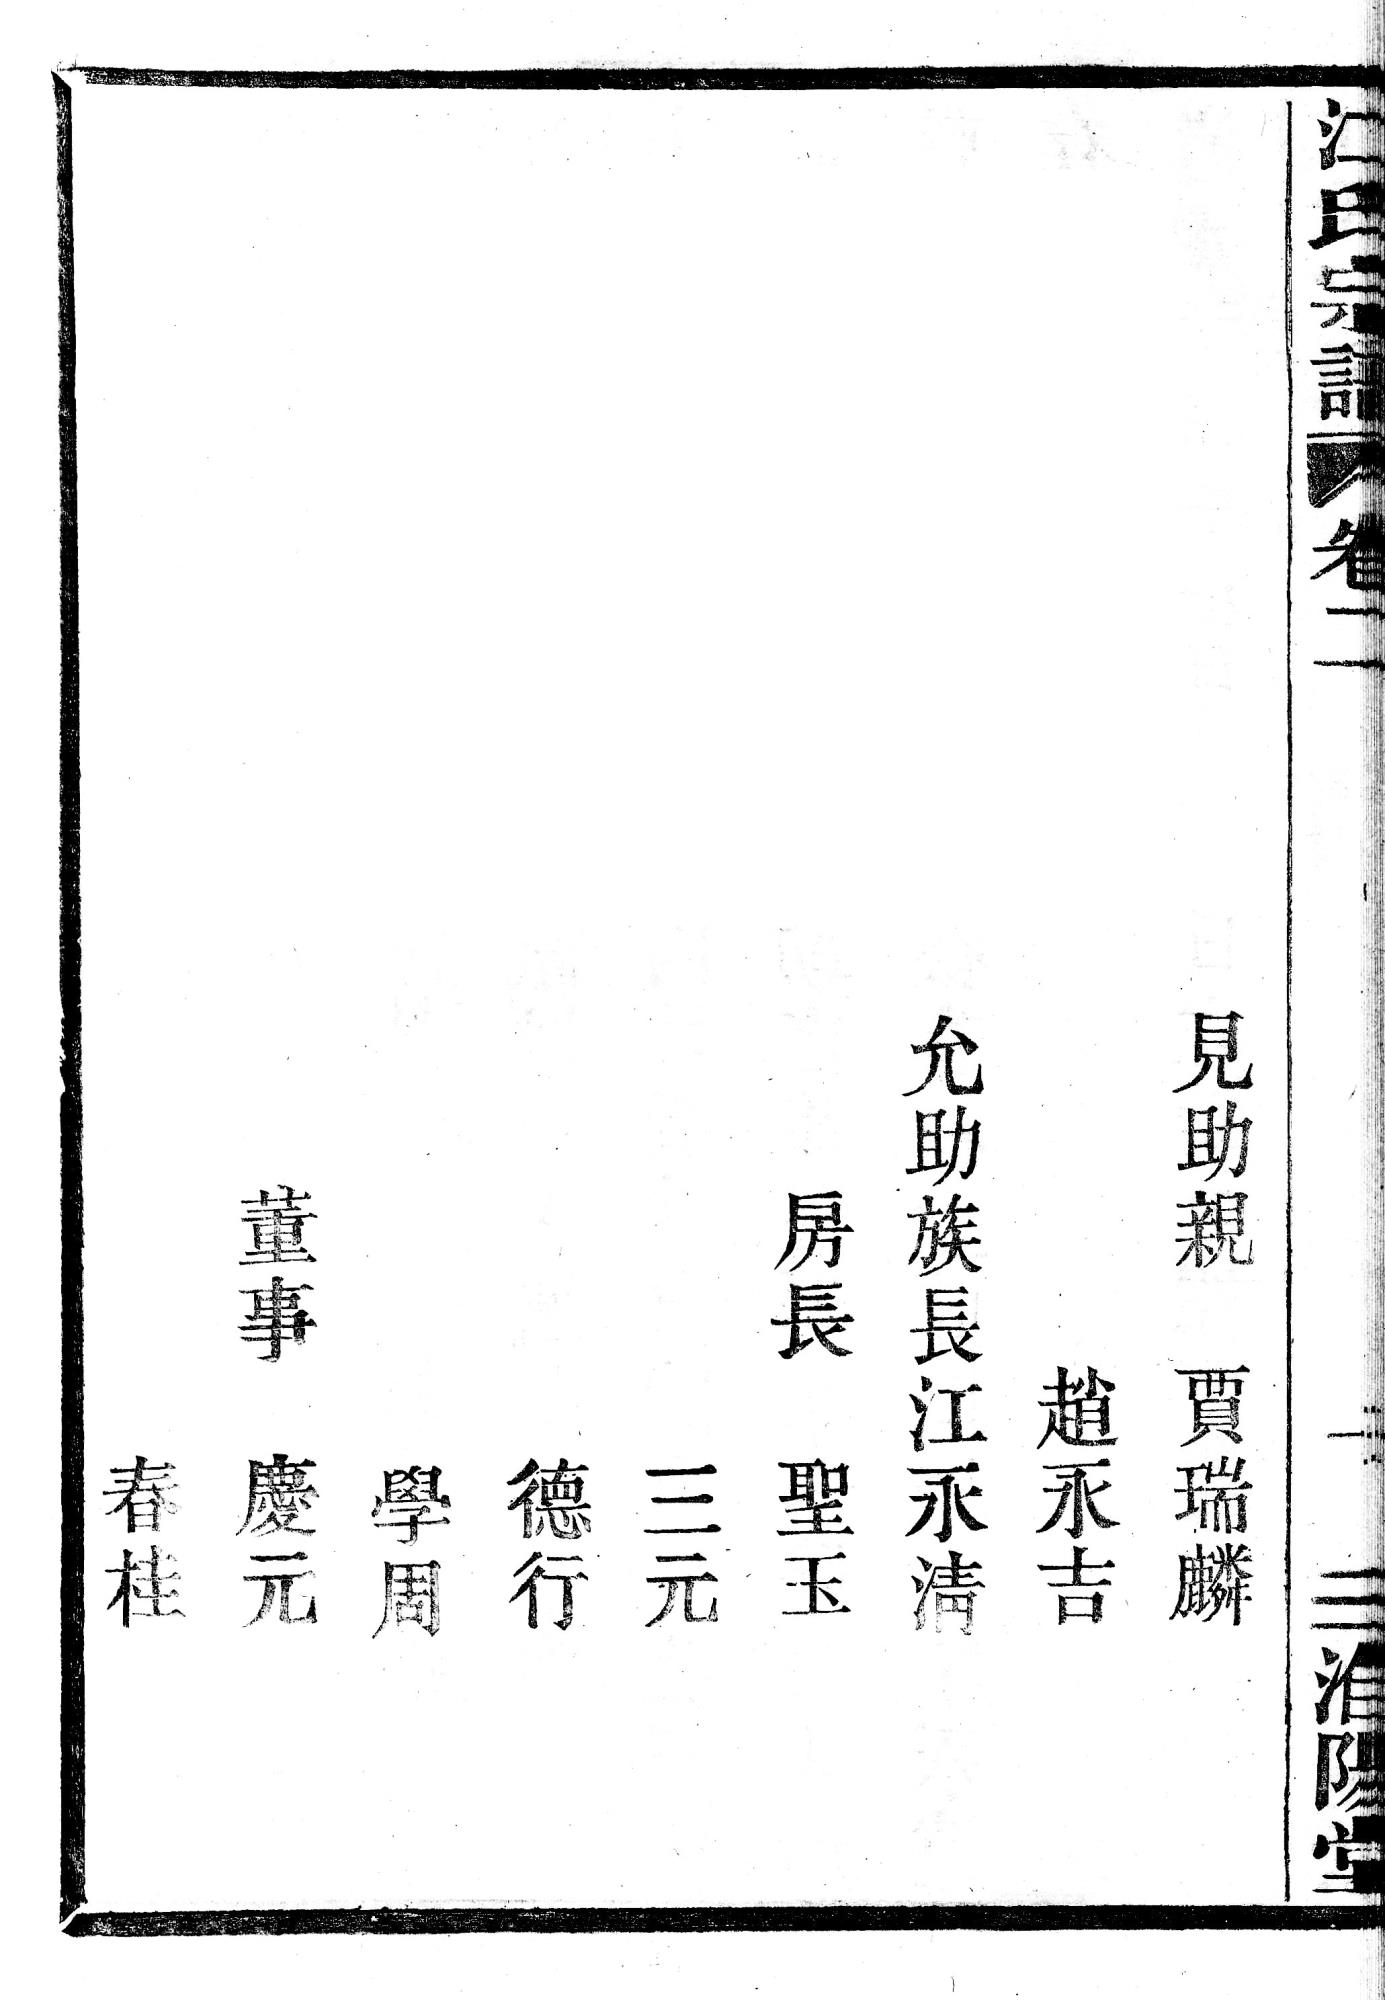 江氏宗譜
卷二
三
淮陽堂
見助親 賈瑞麟
趙永吉
允助族長江永淸
房長 聖玉
三元
德行
學周
董事 慶元
春桂